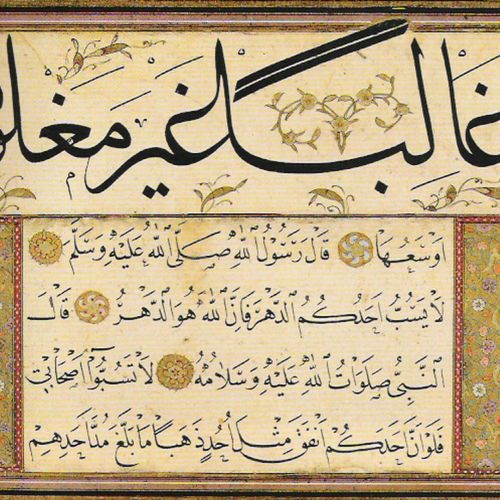 غالبا غير مغلو
اوسعها قال رسول الله صلى الله عليه وسلم
لا يسب احدكم الدهر فان الله هو الدهر قال
النبي صلوات الله عليه وسلامه لا تسبوا اصحابي
فلو ان احدكم انفق مثل احد ذهبا ما بلغ مد احدهم